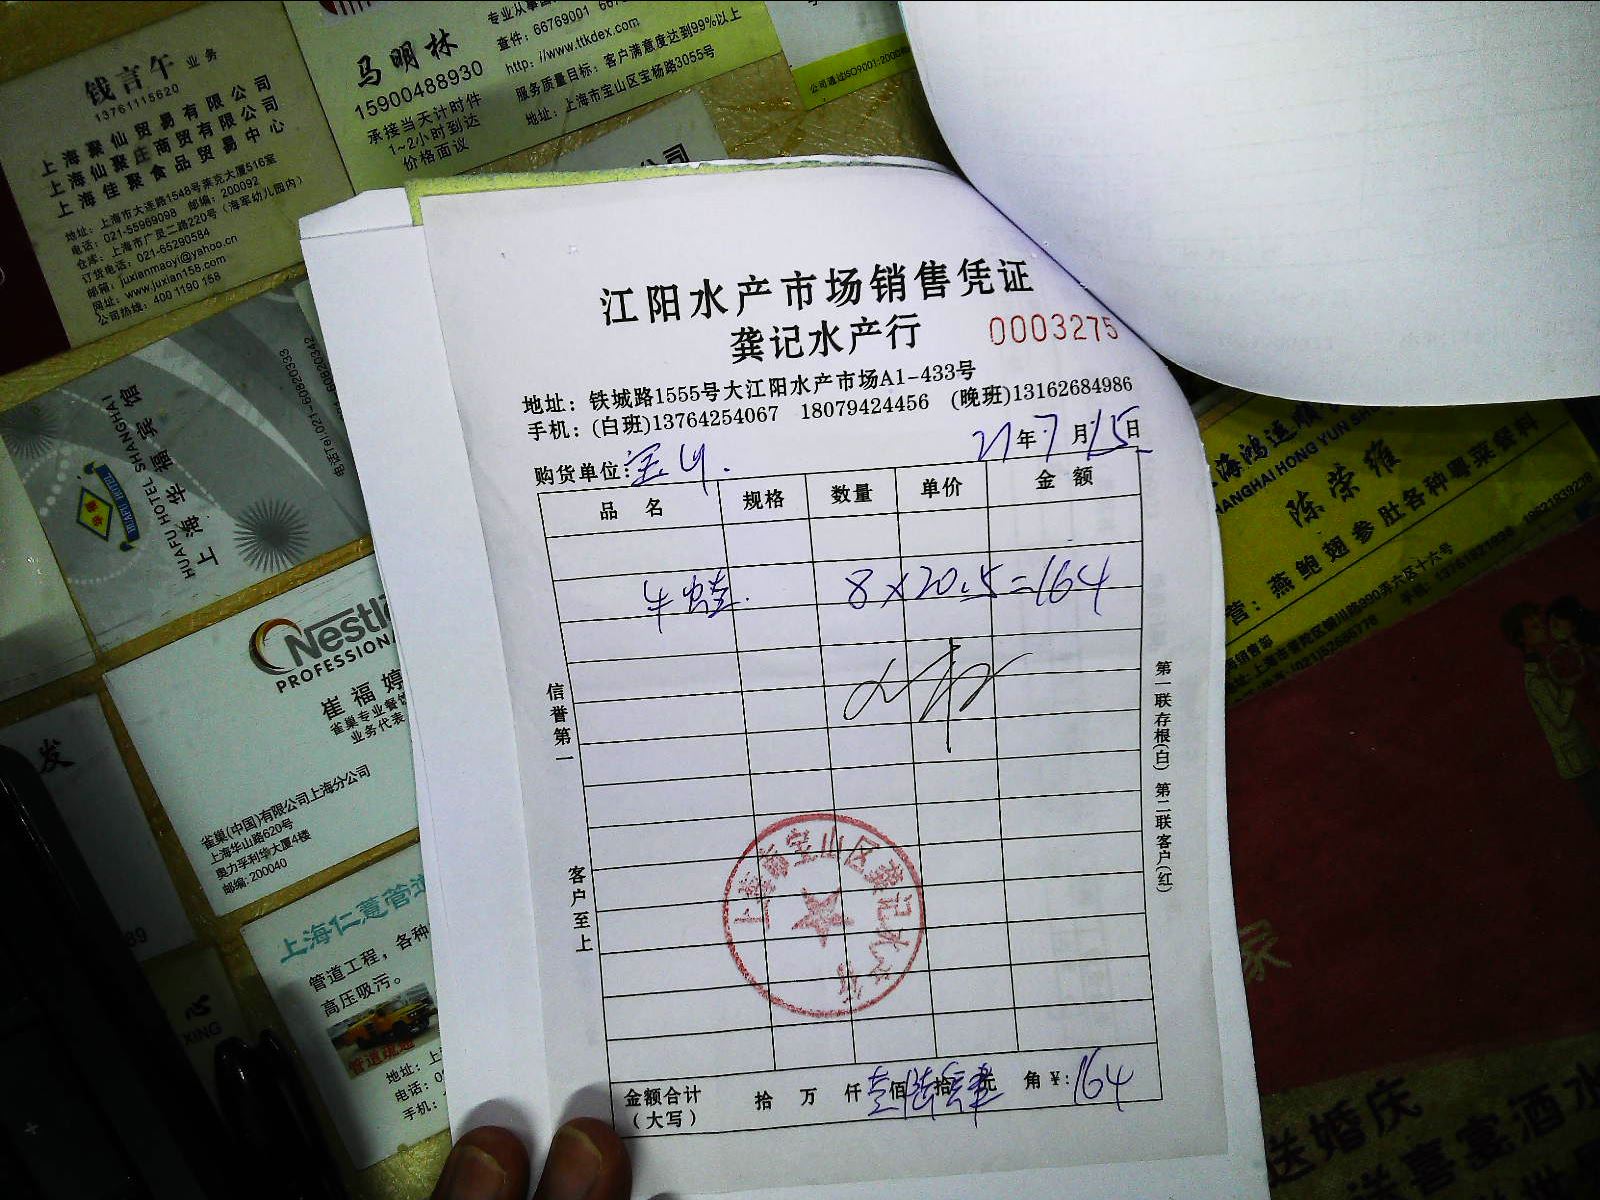 钱言午 业务
13761115620
上海聚仙贸易有限公司
上海仙聚庄商贸有限公司
上海佳聚食品贸易中心
地址：上海市大连路1548号莱克大厦516室
电话：021-55969098 邮编：200092
仓库：上海市广灵二路220号（海军幼儿园内）
订货电话：021-65290584
邮箱：juxianmaoyi@yahoo.cn
网址：www.juxian158.com
公司热线：400 1190 158
马明林
15900488930
承接当天计时件
1~2小时到达
价格面议
查件：66769001
http://www.ttkdex.com
服务质量目标：客户满意度达到99%以上
地址：上海市宝山区宝杨路3055号
公司通过ISO9001:2000
公司
江阳水产市场销售凭证
龚记水产行 0003275
地址：铁城路1555号大江阳水产市场A1-433号
手机：(白班)13764254067 18079424456 (晚班)13162684986
购货单位：宝山. 21年7月15日
品名 规格 数量 单价 金额
牛蛙. 8×20.5=164
信誉第一
客户至上
第一联存根(白) 第二联客户(红)
上海市宝山区龚记水产行
金额合计（大写） 拾 万 仟 壹佰陆拾肆元 角 ¥：164
上海华福宾馆
HUAFU HOTEL SHANGHAI
HUAFU HOTEL
Nestlé
PROFESSIONAL
崔福婷
雀巢专业餐饮
业务代表
雀巢(中国)有限公司上海分公司
上海华山路620号
奥力孚利华大厦4楼
邮编：200040
发
89
心
XING
上海仁薏管道
管道工程，各种
高压吸污。
管道疏通
地址：上
电话：0
手机：
上海鸿运顺
SHANGHAI HONG YUN SHU
陈荣雍
营：燕鲍翅参肚各种粤菜餐料
家
送婚庆
送喜宴酒水